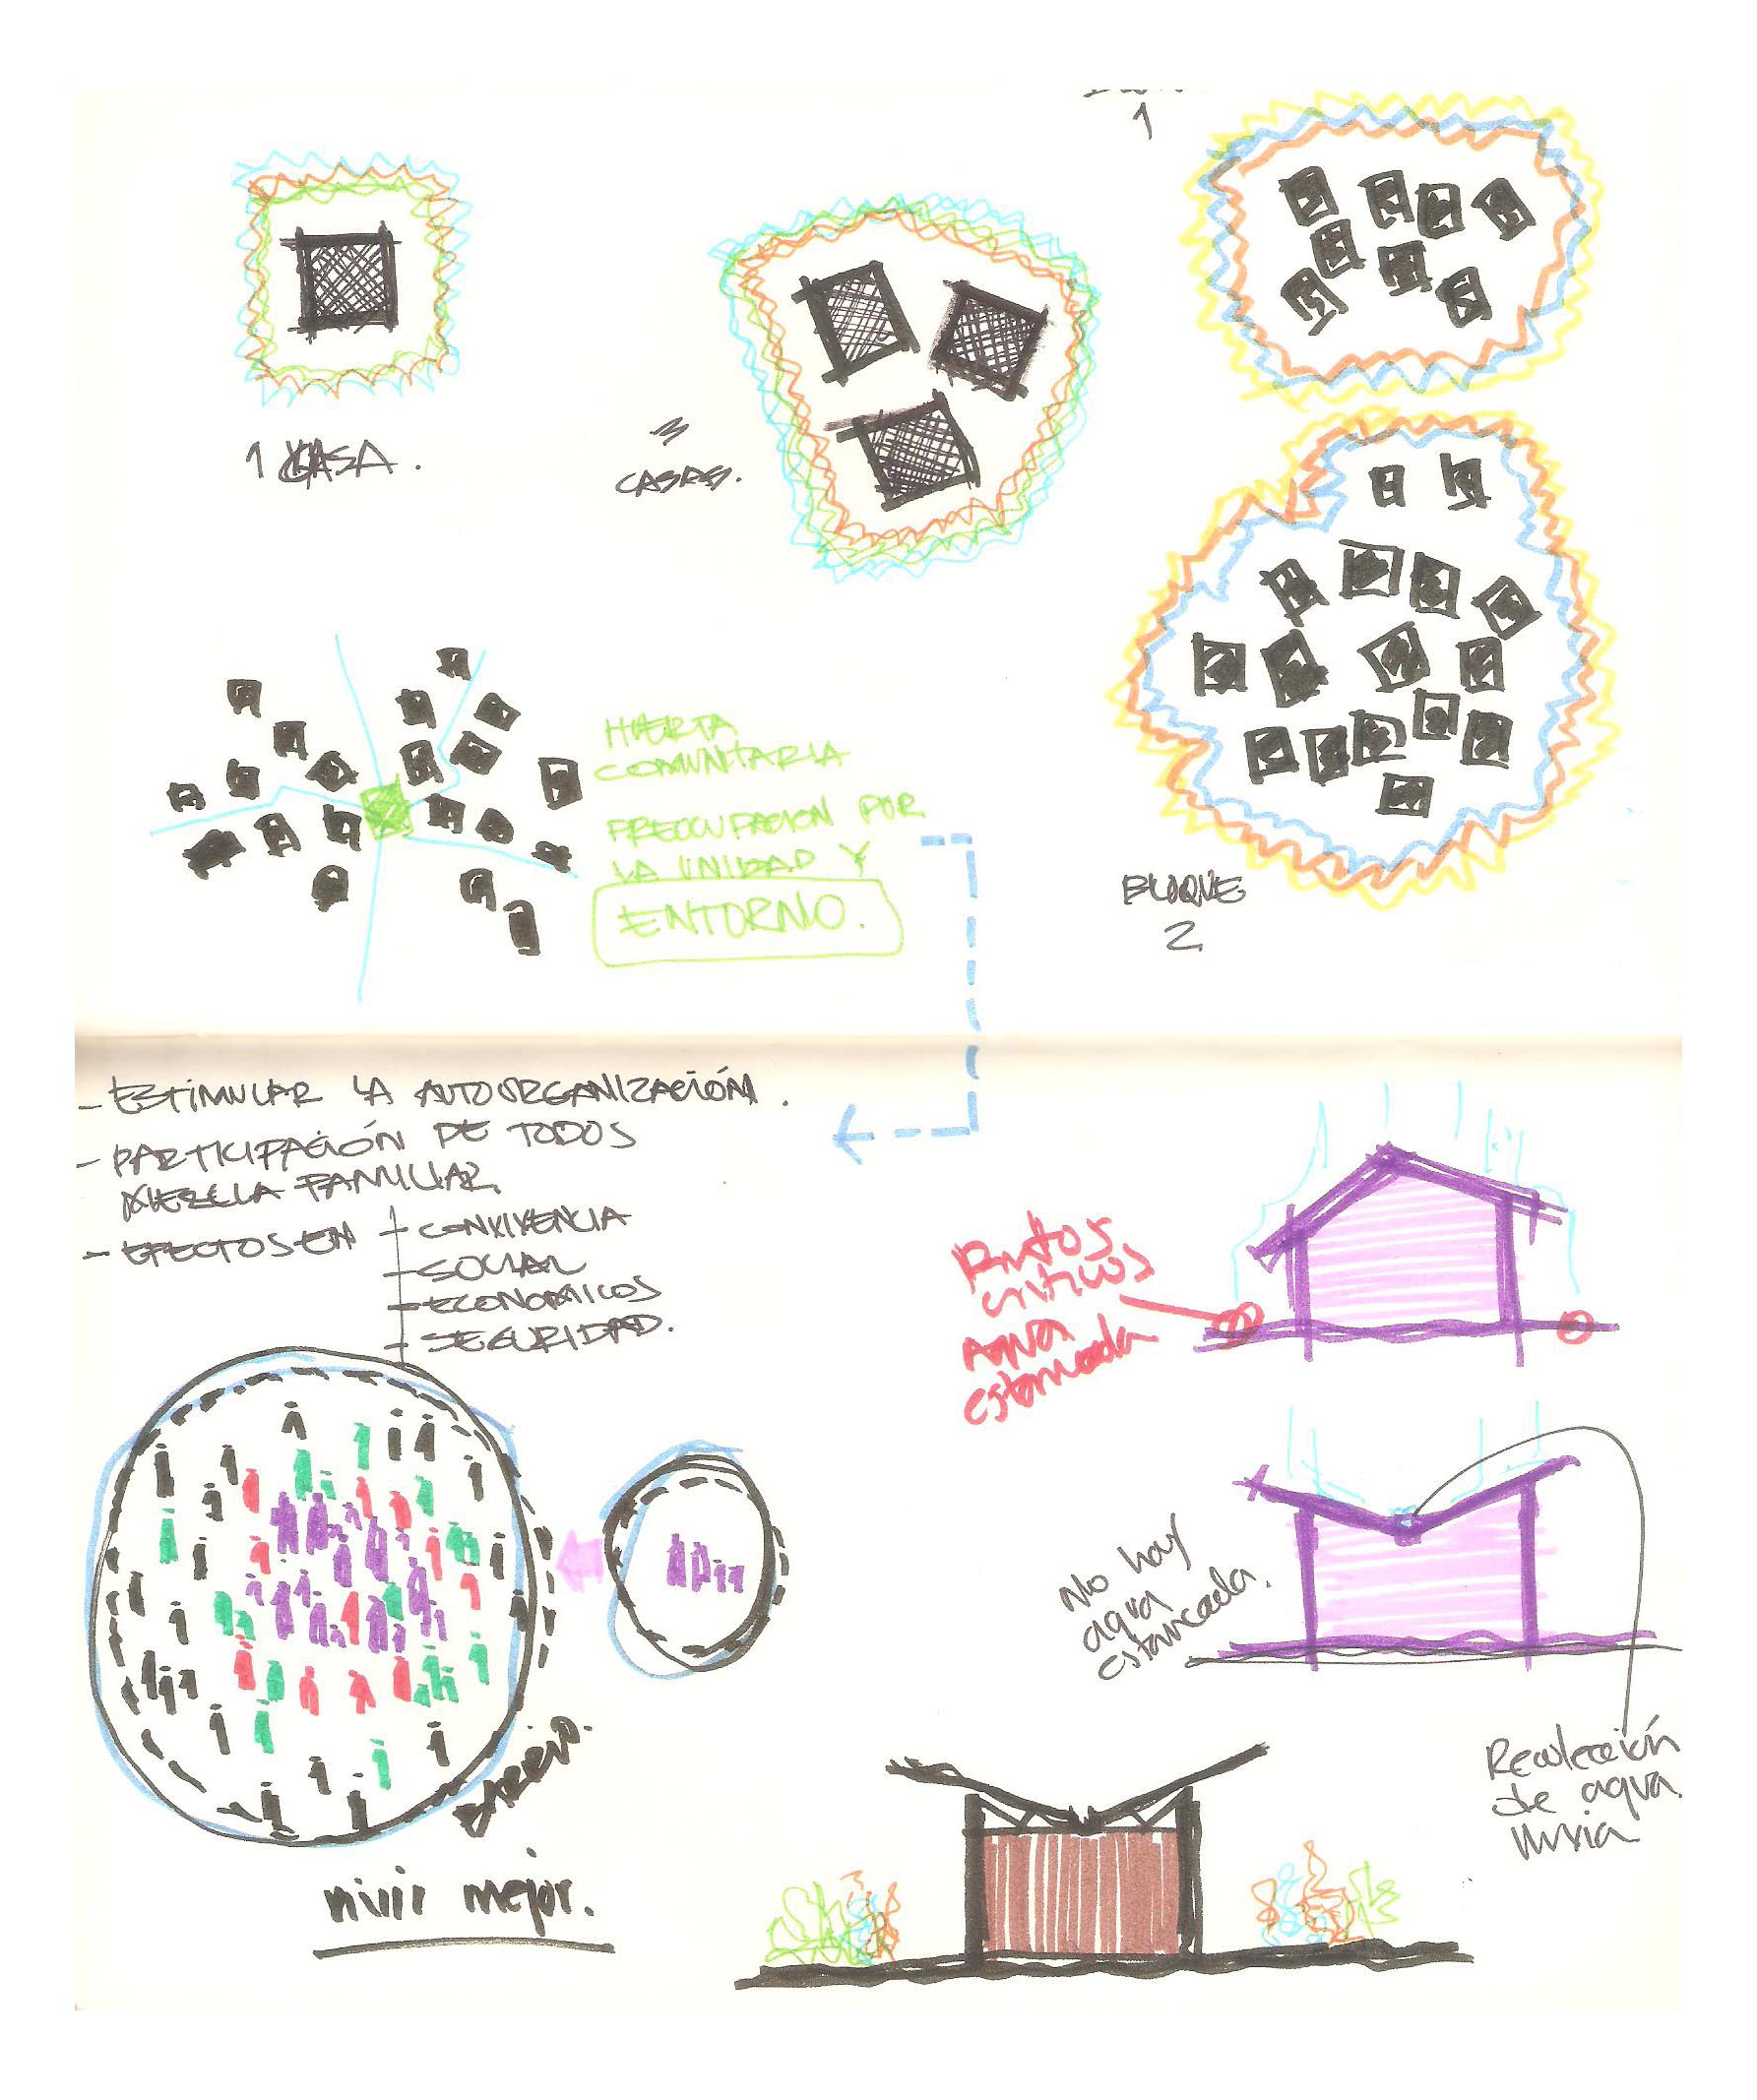 1
1 CASA.
3
CASAS.
HUERTA
COMUNITARIA
PREOCUPACION POR
LA UNIDAD Y
ENTORNO.
BLOQUE
2
- ESTIMULAR LA AUTOORGANIZACIÓN.
- PARTICIPACIÓN DE TODOS
MEZCLA FAMILIAR
- EFECTOS EN
- CONVIVENCIA
- SOCIAL
- ECONOMICOS
- SEGURIDAD.
Puntos
criticos
Agua
estancada
No hay
agua
estancada.
Recolección
de agua
lluvia
BARRIO.
vivir mejor.